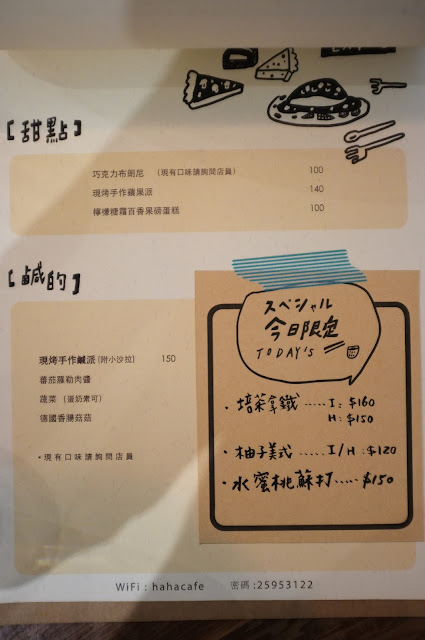 [甜點]
巧克力布朗尼 (現有口味請詢問店員) 100
現烤手作蘋果派 140
檸檬糖霜百香果磅蛋糕 100
[鹹的]
現烤手作鹹派(附小沙拉) 150
蕃茄羅勒肉醬
蔬菜 (蛋奶素可)
德國香腸菇菇
•現有口味請詢問店員
スペシャル
今日限定
TODAY'S
・焙茶拿鐵 ..... I: $160
H: $150
・柚子美式 ..... I/H: $120
・水蜜桃蘇打..... $150
WiFi : hahacafe 密碼 :25953122